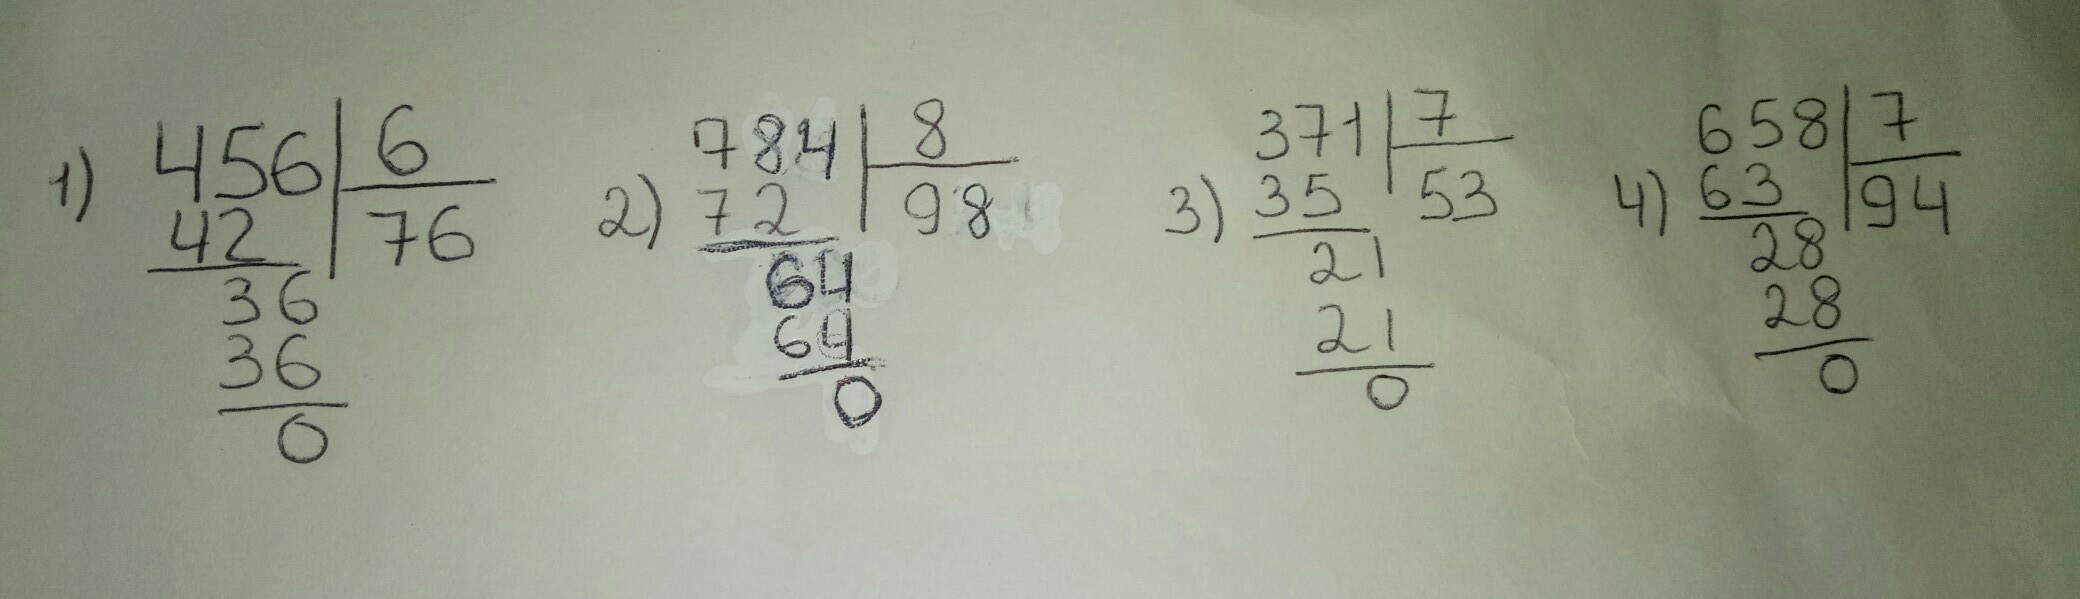 1) 456 6
42 76
36
36
0
2) 784 8
72 98
64
64
0
3) 371 7
35 53
21
21
0
4) 658 7
63 94
28
28
0